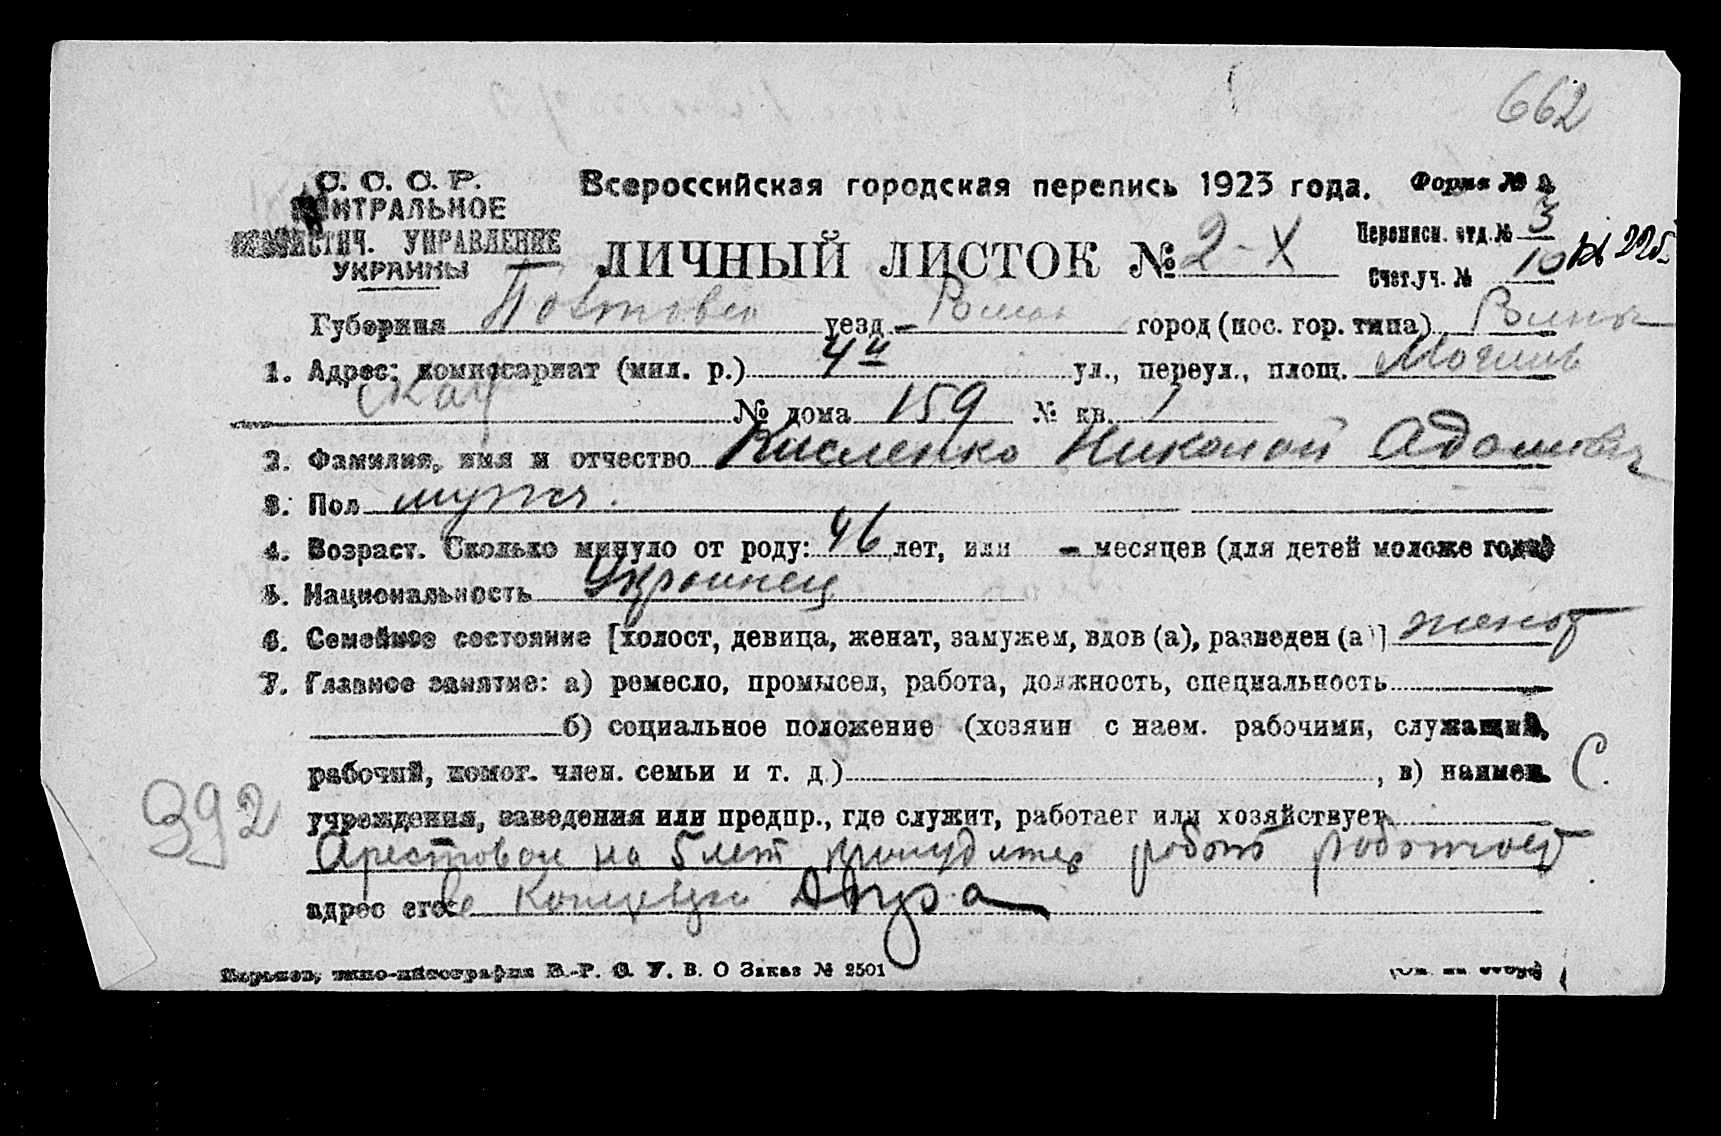 662
С. С. С. Р.
ЦЕНТРАЛЬНОЕ
СТАТИСТИЧ. УПРАВЛЕНИЕ
УКРАИНЫ
Всероссийская городская перепись 1923 года. Форма № 2
ЛИЧНЫЙ ЛИСТОК № 2-X
Переписн. отд. № 3
Счет.уч. № 10
Губерния Полтавск уезд - Ромен город (пос. гор. типа) Ромны
1. Адрес: комиссариат (мил. р.) 4й ул., переул., площ. Могилев
ская № дома 159 № кв. 1
2. Фамилия, имя и отчество Кисленко Николай Адамович
3. Пол мужск.
4. Возраст. Сколько минуло от роду: 46 лет, или - месяцев (для детей моложе года)
5. Национальность Украинец
6. Семейное состояние [холост, девица, женат, замужем, вдов (а), разведен (а)] женат
7. Главное занятие: а) ремесло, промысел, работа, должность, специальность
б) социальное положение (хозяин с наем. рабочими, служащий,
рабочий, помог. член. семьи и т. д.) , в) наимен. С.
392
учреждения, заведения или предпр., где служит, работает или хозяйствует
Арестован на 5 лет принудител работ работает
адрес его: в
Харьков, типо-литография В.-Р. С. У. В. О Заказ № 2501